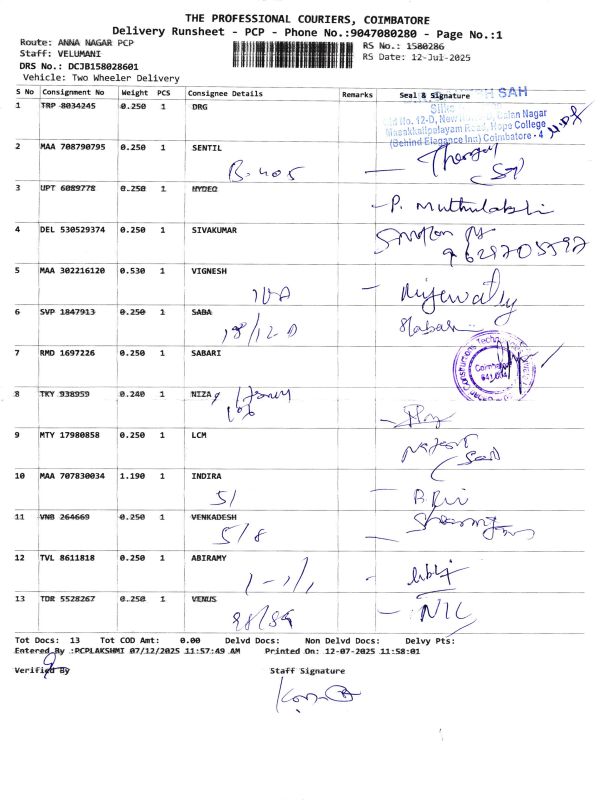 THE PROFESSIONAL COURIERS, COIMBATORE
Delivery Runsheet - PCP - Phone No.:9047080280 - Page No.:1
Route: ANNA NAGAR PCP
Staff: VELUMANI
DRS No.: DCJB158028601
Vehicle: Two Wheeler Delivery
RS No.: 1580286
RS Date: 12-Jul-2025
S No Consignment No Weight PCS Consignee Details Remarks Seal & Signature
1 TRP 8034245 0.250 1 DRG
SAH
Silks
Old No. 12-D, New Balan Nagar
Masakkalipalayam Road, Hope College
(Behind Elegance Inn) Coimbatore - 4
2 MAA 708790795 0.250 1 SENTIL
B. 405
3 UPT 6089778 0.250 1 HYDEQ
P. Muthulakshi
4 DEL 530529374 0.250 1 SIVAKUMAR
9629705597
5 MAA 302216120 0.530 1 VIGNESH
10A
6 SVP 1847913 0.250 1 SABA
18/12-D
7 RMD 1697226 0.250 1 SABARI
Coimbatore
641 014
8 TKY 938959 0.240 1 NIZA
106
9 MTY 17980858 0.250 1 LCM
10 MAA 707830034 1.190 1 INDIRA
5/
11 VNB 264669 0.250 1 VENKADESH
5/8
12 TVL 8611818 0.250 1 ABIRAMY
13 TDR 5528267 0.250 1 VENUS
98/89
NIC
Tot Docs: 13 Tot COD Amt: 0.00 Delvd Docs: Non Delvd Docs: Delvy Pts:
Entered By :PCPLAKSHMI 07/12/2025 11:57:49 AM Printed On: 12-07-2025 11:58:01
Verified By Staff Signature